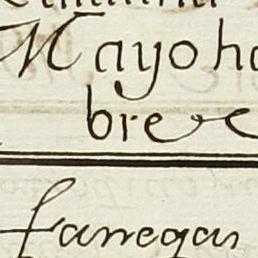 Mayo ha
bre
fanegas